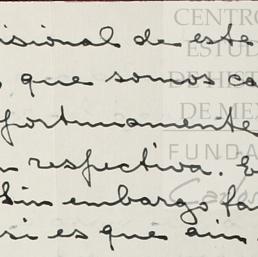 isional de este
que somos ca
fortunamente
n respectiva. E
Sin embargo fa
si es que aun
CENTRO
ESTUD
DE HIST
DE MEX
FUNDA
Carlos